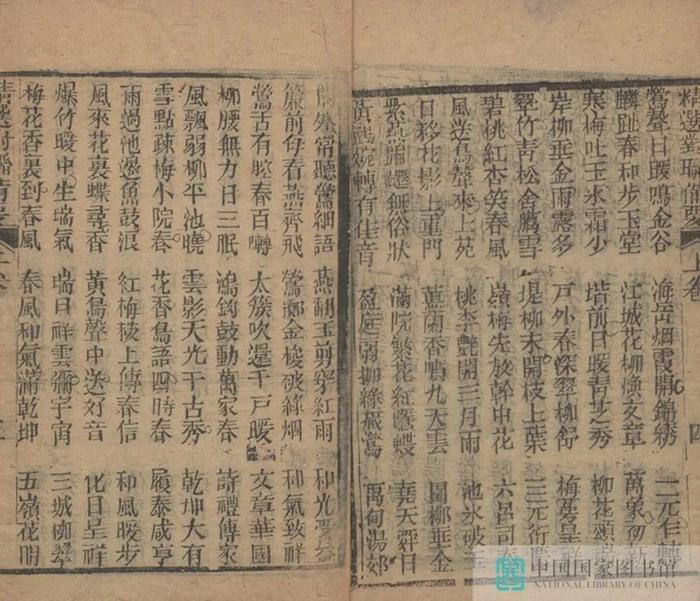 精選對聯備要 上卷 四
鶯聲日暖鳴金谷 海岳烟霞開錦綉 二元行轉
麟趾春和步玉堂 江城花柳煥文章 萬象
寒梅吐玉氷霜少 堦前日暖青芝秀 柳花頌
岸柳垂金雨露多 戶外春深翠柳舒 梅蕚呈
翠竹青松含臘雪 堤柳未開枝上葉 三元衍
碧桃紅杏笑春風 嶺梅先放幹中花 六呂司春
風送鳥聲來上苑 桃李艷開三月雨 池氷破
日移花影上重門 蕙蘭香噴九天雲 園柳垂金
紫燕喃 無俗状 滿院繁花紅隱蝶 堯天舜日
黃鸝婉轉有佳音 盈庭弱柳綠藏鶯 禹甸湯郊
常聽鶯細語 燕翻玉剪穿紅雨 和光
簾前每看燕齊飛 鶯擲金梭破綠烟 和氣致祥
鶯舌有腔春百囀 太簇吹還千戶暖 文章華國
柳腰無力日三眠 鴻鈞鼓動萬家春 詩禮傳家
風飄弱柳平池曉 雲影天光千古秀 乾坤大有
雪點疎梅小院春 花香鳥語四時春 履泰咸亨
雨過池邊魚鼓浪 紅梅稜上傳春信 和風暖步
風來花裏蝶尋香 黃鳥聲中送好音 化日呈祥
爆竹暖中生瑞氣 瑞日祥雲彌宇宙 三城柳翠
梅花香裏到春風 春風和氣滿乾坤 五嶺花明
中国国家图书馆
NATIONAL LIBRARY OF CHINA